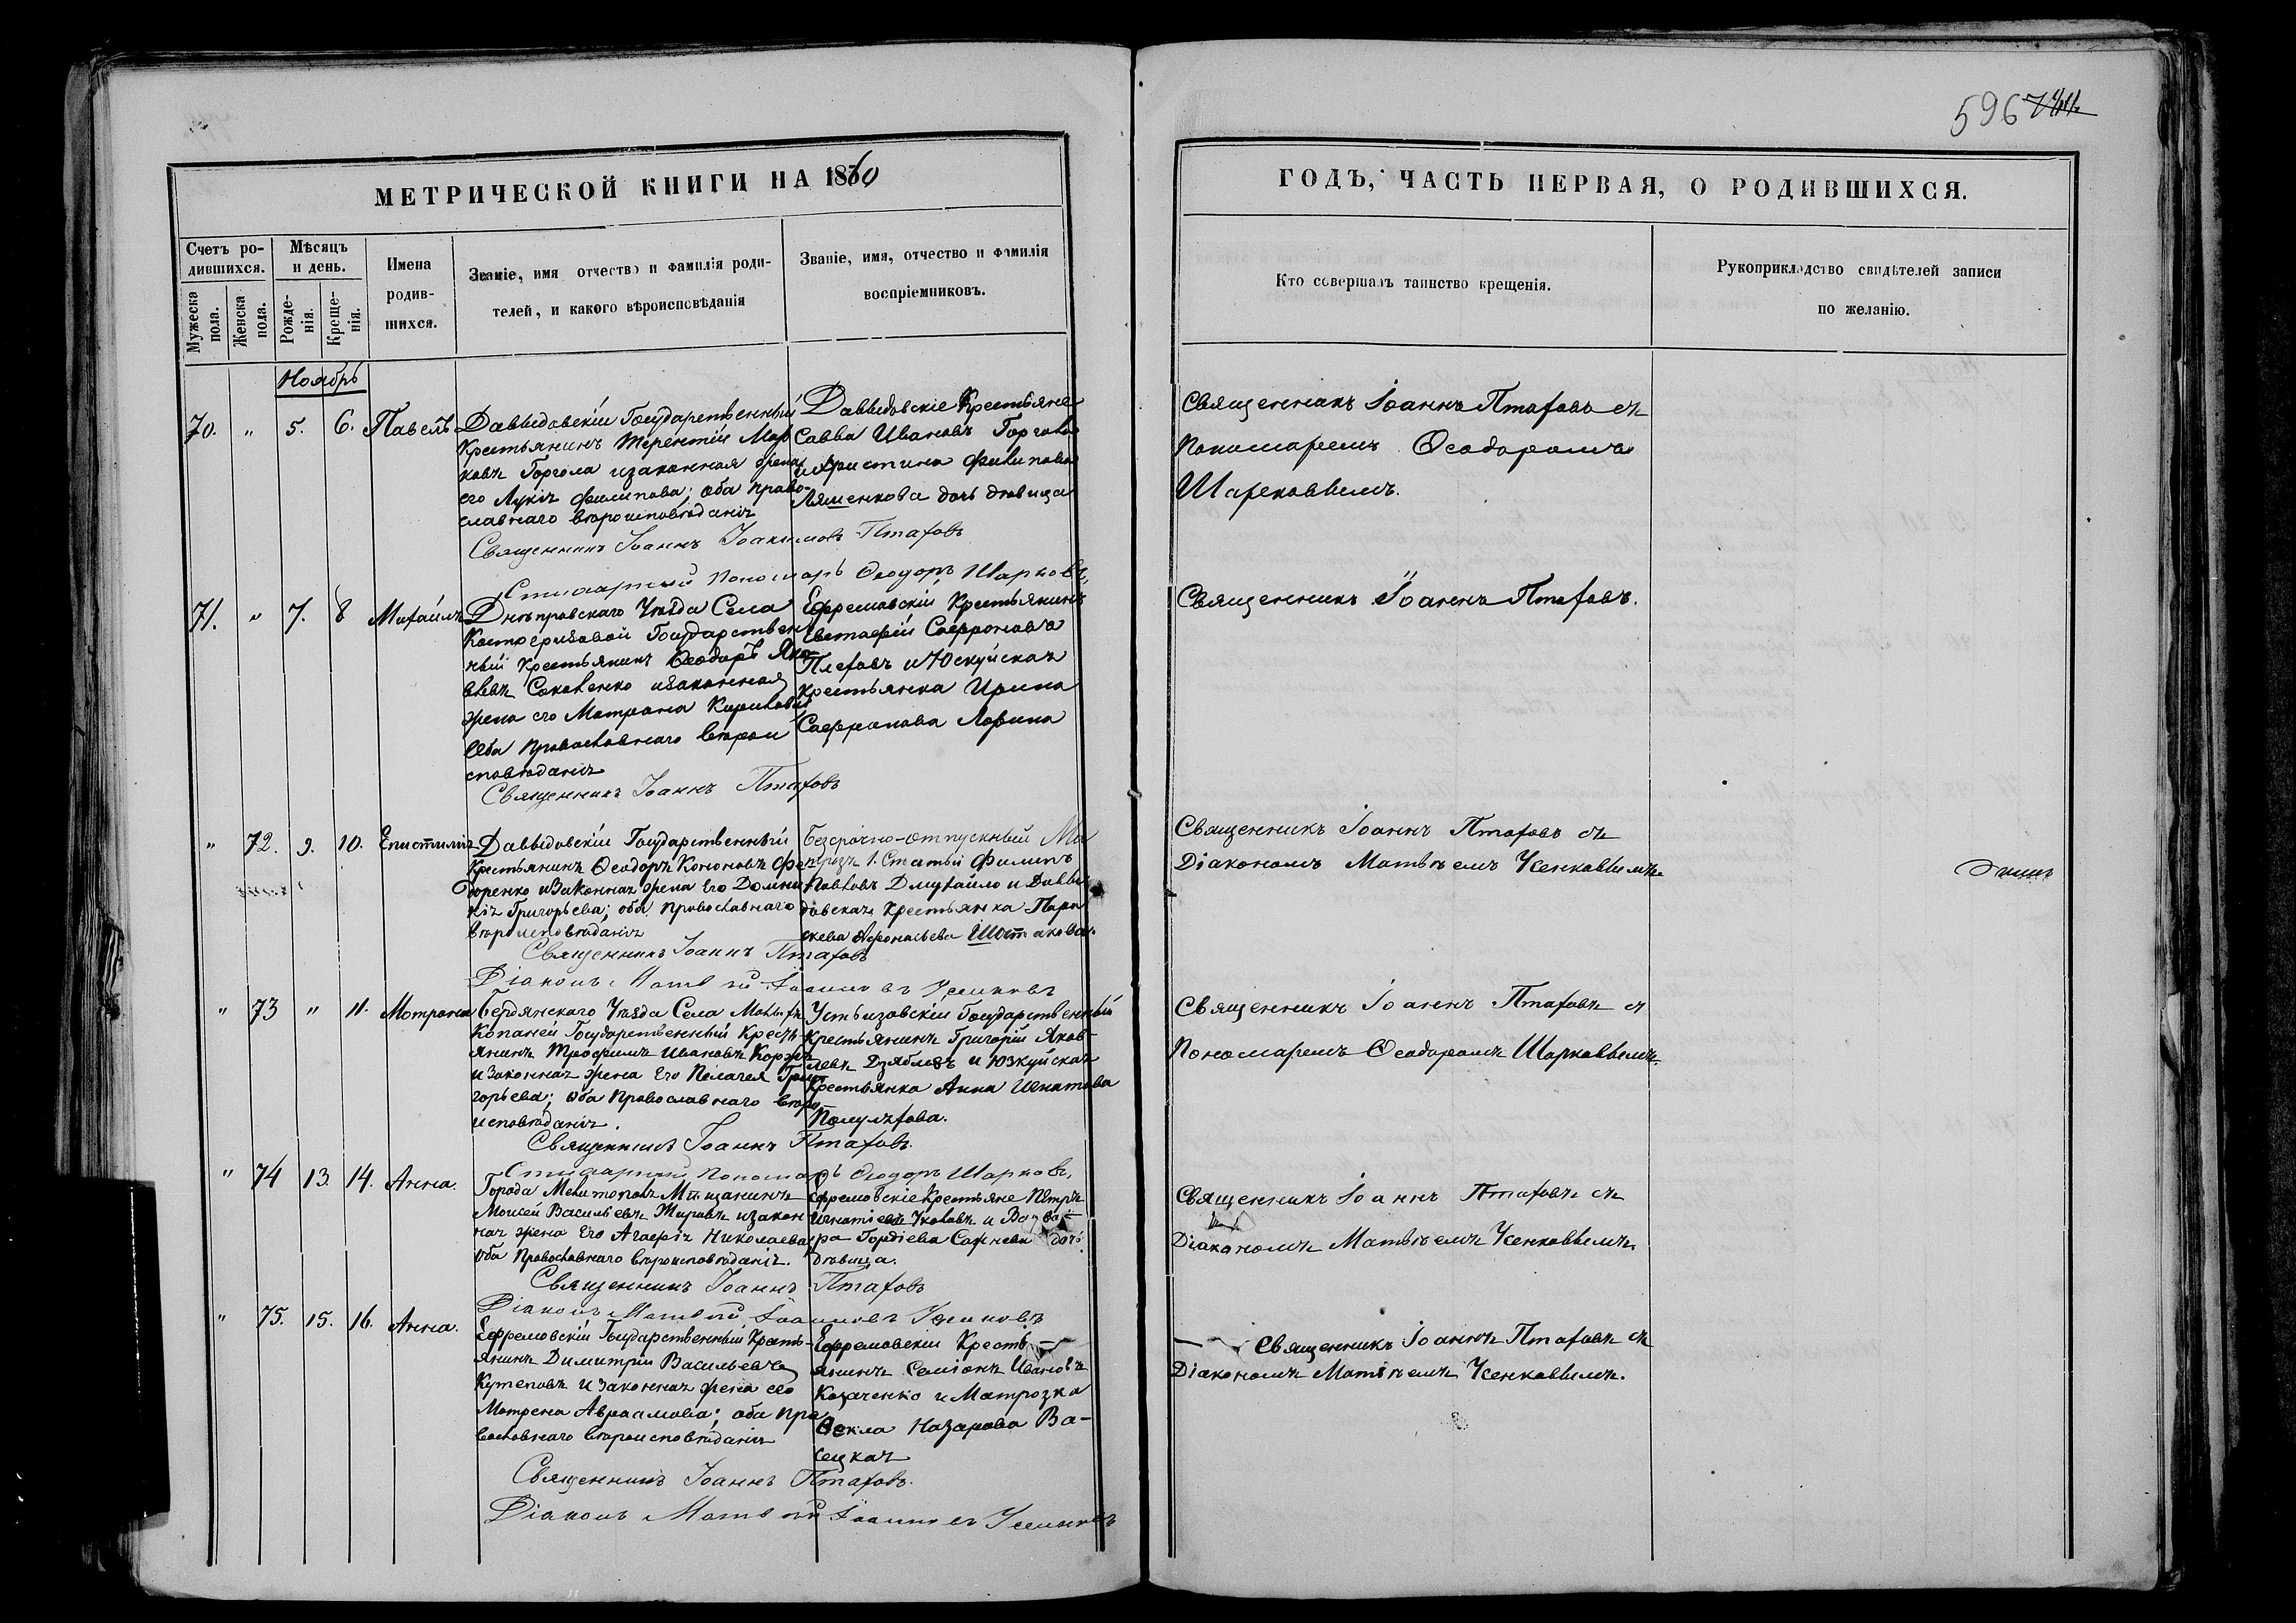 596
МЕТРИЧЕСКОЙ КНИГИ НА 1860
ГОДЪ, ЧАСТЬ ПЕРВАЯ, О РОДИВШИХСЯ.
Счетъ ро-
дившихся.
Мужеска
пола.
Женска
пола.
Мѣсяцъ
и день.
Рожде-
нія.
Креще-
нія.
Имена
родив-
шихся.
Званіе, имя отчество и фамилія роди-
телей, и какого вѣроисповѣданія
Званіе, имя, отчество и фамилія
воспріемниковъ.
Кто совершалъ таинство крещенія.
Рукоприкладство свидѣтелей записи
по желанію.
Ноябрь
70. " 5. 6. Павелъ
Давыдовскій Государственный
Крестьянинъ Терентій Мар
ковъ Горгола изаконная жена
его Лукія Филипова; оба право-
славнаго вѣроисповѣданія
Давыдовскіе Крестьяне
Савва Ивановъ Горгола
и Христина Филипова
Ляшенкова дочь дѣвица
Священникъ Іоаннъ Птаховъ съ
Пономаремъ Ѳеодоромъ
Шарковымъ.
Священникъ Іоаннъ Іоакимовъ Птаховъ
Стихарный Пономарь Ѳеодоръ Шарковъ,
71. " 7. 8 Михаилъ
Днѣпровскаго Уѣзда Села
Государствен
ный Крестьянинъ Ѳеодоръ Яко
влевъ Соколенко изаконная
жена его Матрона Кирилова
Оба Православнаго вѣрои
сповѣданія
Ефремовскій Крестьянинъ
Евстафій Софроновъ
Плеховъ и Юскуйская
крестьянка Ирина
Софронова
Священникъ Іоаннъ Птаховъ.
Священникъ Іоаннъ Птаховъ
" 72. 9. 10. Епистимія
Давыдовскій Государственный
Крестьянинъ Ѳеодоръ Кононовъ Фе
доренко изаконная жена Его Домни
кія Григорьева; оба православнаго
вѣроисповѣданія
Безсрочно-отпускный Ма
трозъ 1. Статьи Филипъ
Павловъ Дмухайло и Давы
довская Крестьянка Пара
скева Афонасьева
Священникъ Іоаннъ Птаховъ съ
Діакономъ Матвѣемъ Усенковымъ.
Священникъ Іоаннъ Птаховъ
Діаконъ Матвѣй Іоанновъ Усенковъ
" 73 " 11. Матрона
Бердянскаго Уѣзда Села Малыхъ
Копаней Государственный Кресть
янинъ Трофимъ Ивановъ Коржъ
и Законная жена Его Пелагея Гри
горьева; оба Православнаго вѣро
исповѣданія.
Государственный
Крестьянинъ Григорій Яков-
левъ Дзяблявъ и Юзкуйская
Крестьянка Анна Игнатова
Священникъ Іоаннъ Птаховъ съ
Пономаремъ Ѳеодоромъ Шарковымъ.
Священникъ Іоаннъ Птаховъ.
Стихарный Пономарь Ѳеодоръ Шарковъ.
" 74 13. 14. Анна.
Города Мелитополь Мѣщанинъ
Моисей Васильевъ Жировъ изакон
ная жена Его Агафія Николаева
Оба Православнаго вѣроисповѣданія.
Ефремовскіе Крестьяне Петръ
Игнатіевъ и Варва-
ра Гордіева дочь
дѣвица.
Священникъ Іоаннъ Птаховъ съ
Діакономъ Матвѣемъ Усенковымъ.
Священникъ Іоаннъ Птаховъ
Діаконъ Матвѣй Іоанновъ Усенковъ
" 75. 15. 16. Анна.
Ефремовскій Государственный Кресть-
янинъ Димитрій Васильевъ
Кутеповъ и Законная жена его
Матрена Авраамова; оба пра
вославнаго вѣроисповѣданія
Ефремовскіи Кресть-
янинъ Семіонъ Ивановъ
Козаченко и Матрозка
Ѳекла Назарова Ва-
сецкая
Священникъ Іоаннъ Птаховъ съ
Діакономъ Матвѣемъ Усенковымъ.
Священникъ Іоаннъ Птаховъ.
Діаконъ Матвѣй Іоанновъ Усенковъ